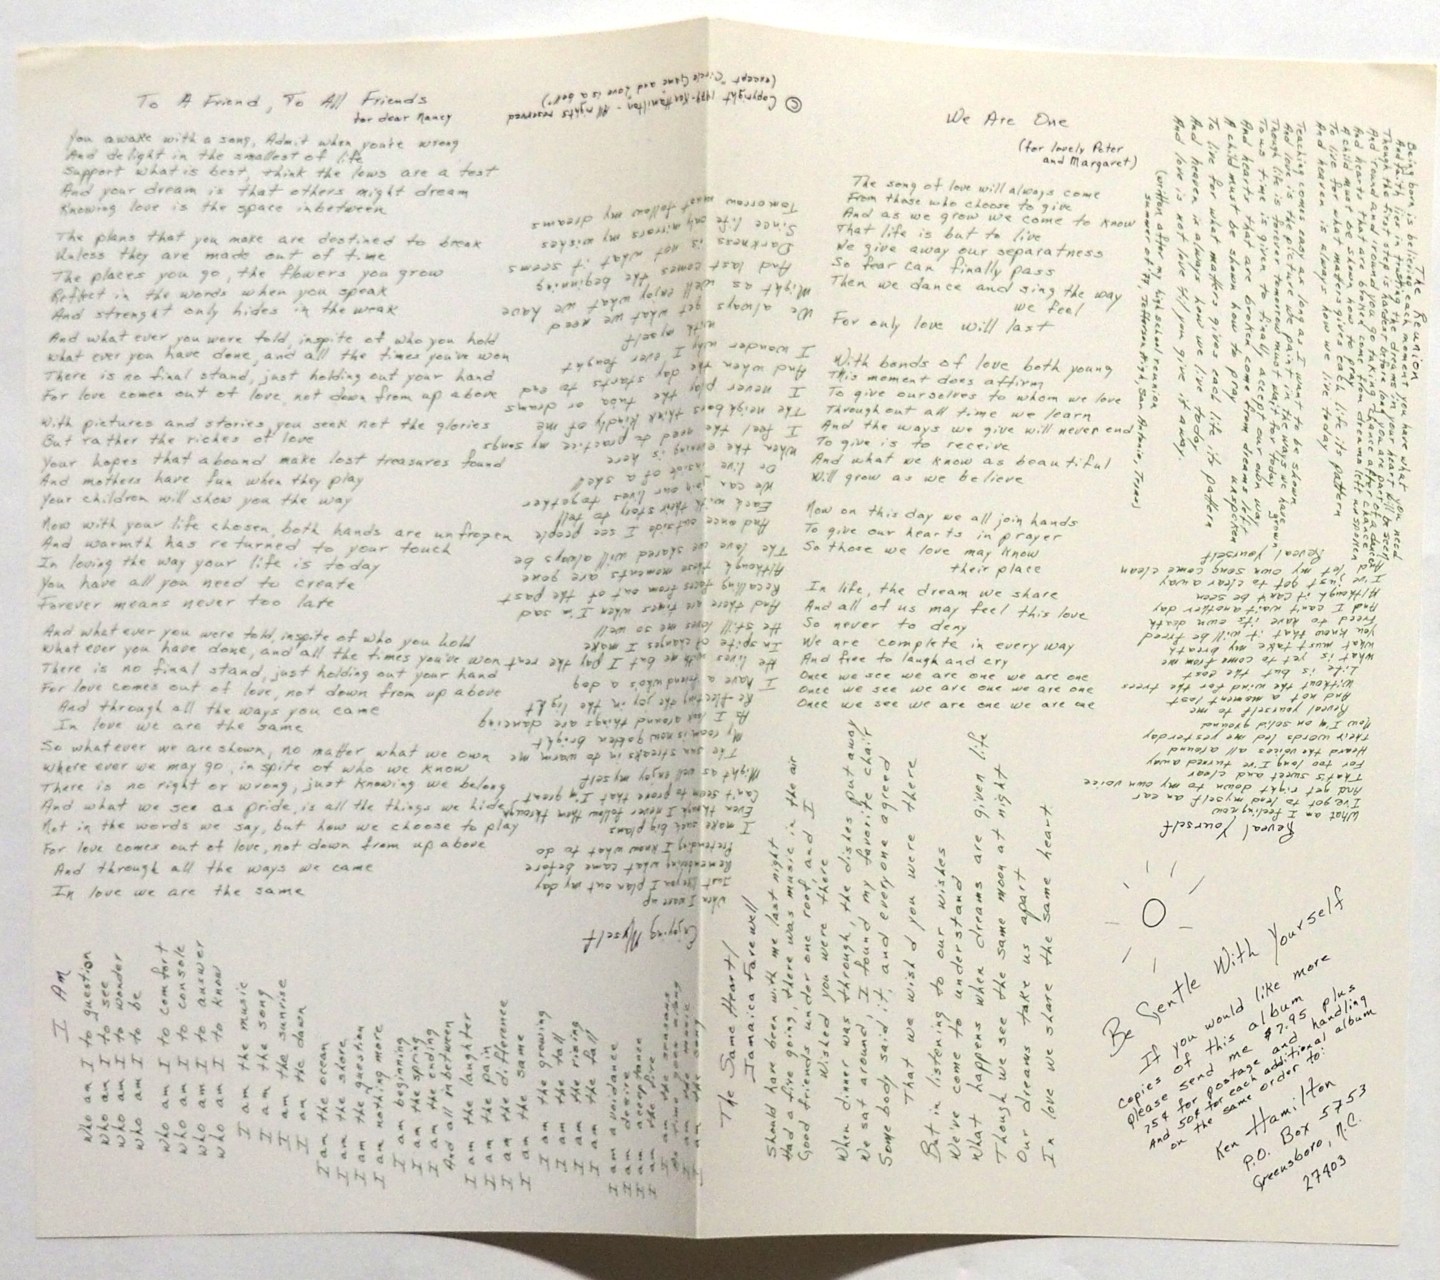 To A Friend, To All Friends
for dear Nancy
You awake with a song, Admit when you're wrong
And delight in the smallest of life
Support what is best, think the lows are a test
And your dream is that others might dream
Knowing love is the space inbetween
The plans that you make are destined to break
Unless they are made out of time
The places you go, the flowers you grow
Reflect in the words when you speak
And strenght only hides in the weak
And what ever you were told, inspite of who you hold
What ever you have done, and all the times you've won
There is no final stand, just holding out your hand
For love comes out of love, not down from up above
With pictures and stories, you seek not the glories
But rather the riches of love
Your hopes that abound make lost treasures found
And mothers have fun when they play
Your children will show you the way
Now with your life chosen, both hands are unfrozen
And warmth has returned to your touch
In loving the way your life is today
You have all you need to create
Forever means never too late
And what ever you were told, inspite of who you hold
What ever you have done, and all the times you've won
There is no final stand, just holding out your hand
For love comes out of love, not down from up above
And through all the ways you came
In love we are the same
So whatever we are shown, no matter what we own
Where ever we may go, in spite of who we know
There is no right or wrong, just knowing we belong
And what we see as pride, is all the things we hide
Not in the words we say, but how we choose to play
For love comes out of love, not down from up above
And through all the ways we came
In love we are the same
© Copyright 1979 - Ken Hamilton - All rights reserved
(except "Circle Game and Love is a Gold")
Enjoying Myself
When I wake up
Just began I play out my day
Remembering what came before
Pretending I know what to do
I make such big plans
Even though I never follow them through
Can't seem to prove that I'm great
Might as well enjoy myself
The sun streaks in to warm me
My room is now golden bright
As I look around things are dancing
Reflecting the joy in the light
I have a friend who's a dog
He lives with me but I pay the rent
In spite of changes I make
He still loves me so well
And there are times when I'm sad
Recalling faces from out of the past
Although those moments are gone
The love we shared will always be
And once outside I see people
Each with their story to tell
We can join our lives together
Or live inside of a shell
When the evening is here
I feel the need to practice my songs
The neighbors think kindly of me
I never play the tuba or drums
And when the day starts to end
I wonder why I ever fought
with myself
We always get what we need
Might as well enjoy what we have
And last comes the beginning
Darkness is not what it seems
Since life only mirrors my wishes
Tomorrow must follow my dreams
We Are One
(for lovely Peter
and Margaret)
The song of love will always come
From those who choose to give
And as we grow we come to know
That life is but to live
We give away our separatness
So fear can finally pass
Then we dance and sing the way
we feel
For only love will last
With bonds of love both young
This moment does affirm
To give ourselves to whom we love
Throughout all time we learn
And the ways we give will never end
To give is to receive
And what we know as beautiful
Will grow as we believe
Now on this day we all join hands
To give our hearts in prayer
So those we love may know
their place
In life, the dream we share
And all of us may feel this love
So never to deny
We are complete in every way
And free to laugh and cry
Once we see we are one we are one
Once we see we are one we are one
Once we see we are one we are one
The Reunion
Being born is believing each moment you have what you need
And faith lies in trusting the dreams in your heart will be seen
Though the first step is harder before long you are part of a dance
And round and around you go taking chance after chance
And hearts that are broken come from dreams left unspoken
A child must be shown how to pray
To live for what matters gives each life its pattern
And heaven is always how we live today
Teaching comes easy as long as I want to be shown
And love is the picture we paint in the ways we have grown
Though life is forever tomorrow must wait for today
To us time is given to finally accept our own way
And hearts that are broken come from dreams left unspoken
A child must be shown how to pray
To live for what matters gives each life its pattern
And heaven is always how we live today
And love is not love til you give it away.
(written after my high school reunion
summer of 79, Jefferson High, San Antonio, Texas)
Reveal Yourself
What am I feeling now
I've got to lead myself an ear
And get right down to my own voice
That's sweet and clear
For too long I've turned away
Heard the voices all around
Their words led me yesterday
Now I'm on solid ground
Reveal yourself to me
And not a moment last
Without the wind for the trees
Life is but the cast
What is yet to come from me
What must take my breath
You know that it will be freed
Freed to have its own death
And I can't wait another day
Although it can't be seen
I've just got to clear away
And let my own song come clean
Reveal Yourself
I Am
Who am I to question
Who am I to see
Who am I to wonder
Who am I to be
Who am I to comfort
Who am I to console
Who am I to answer
Who am I to know
I am the music
I am the song
I am the sunrise
I am the dawn
I am the ocean
I am the shore
I am the question
I am nothing more
I am beginning
I am the spring
I am the ending
And all inbetween
I am the laughter
I am the pain
I am the difference
I am the same
I am the growing
I am the tall
I am the rising
I am the fall
I am avoidance
I am desire
I am acceptance
I am the fire
I am the seasons
As time goes along
I am the music
I am the song
The Same Heart/
Jamaica Farewell
Should have been with me last night
Had a fire going, there was music in the air
Good friends under one roof, and I
Wished you were there
When dinner was through, the dishes put away
We sat around, I found my favorite chair
Some body said it, and everyone agreed
That we wished you were there
But in listening to our wishes
We've come to understand
What happens when dreams are given life
Though we see the same moon at night
Our dreams take us apart
In love we share the same heart
Be Gentle With Yourself
If you would like more
copies of this album
please send me $7.95 plus
75¢ for postage and handling
And 50¢ for each additional album
on the same order to:
Ken Hamilton
P.O. Box 5753
Greensboro, N.C.
27403